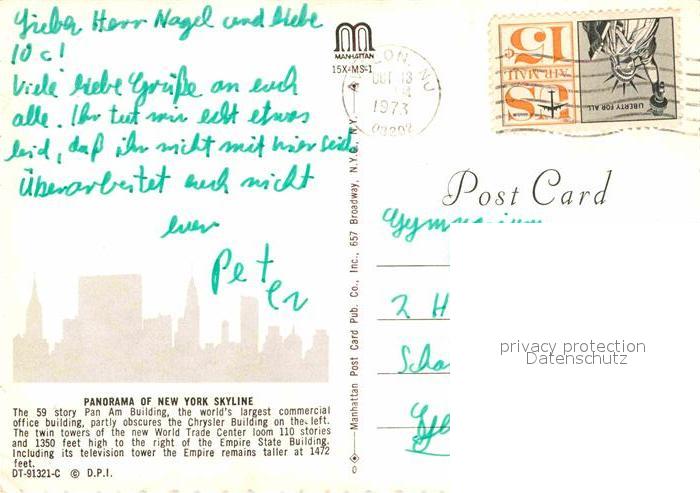 Lieber Herr Nagel und liebe
10 c!
Viele liebe Grüße an euch
alle. Ihr tut mir echt etwas
leid, daß ihr nicht mit hier seid.
Überarbeitet euch nicht
euer
Peter
PANORAMA OF NEW YORK SKYLINE
The 59 story Pan Am Building, the world's largest commercial
office building, partly obscures the Chrysler Building on the left.
The twin towers of the new World Trade Center loom 110 stories
and 1350 feet high to the right of the Empire State Building.
Including its television tower the Empire remains taller at 1472
feet.
DT-91321-C © D.P.I.
MANHATTAN
15X-MS-1
Manhattan Post Card Pub. Co., Inc., 657 Broadway, N.Y.C., N.Y.
ON, NJ
OCT 13
1973
US 15¢
AIR MAIL
LIBERTY FOR ALL
Post Card
Gymnasium
2 H
Scha
privacy protection
Datenschutz